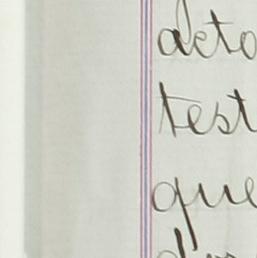 acto
test
que